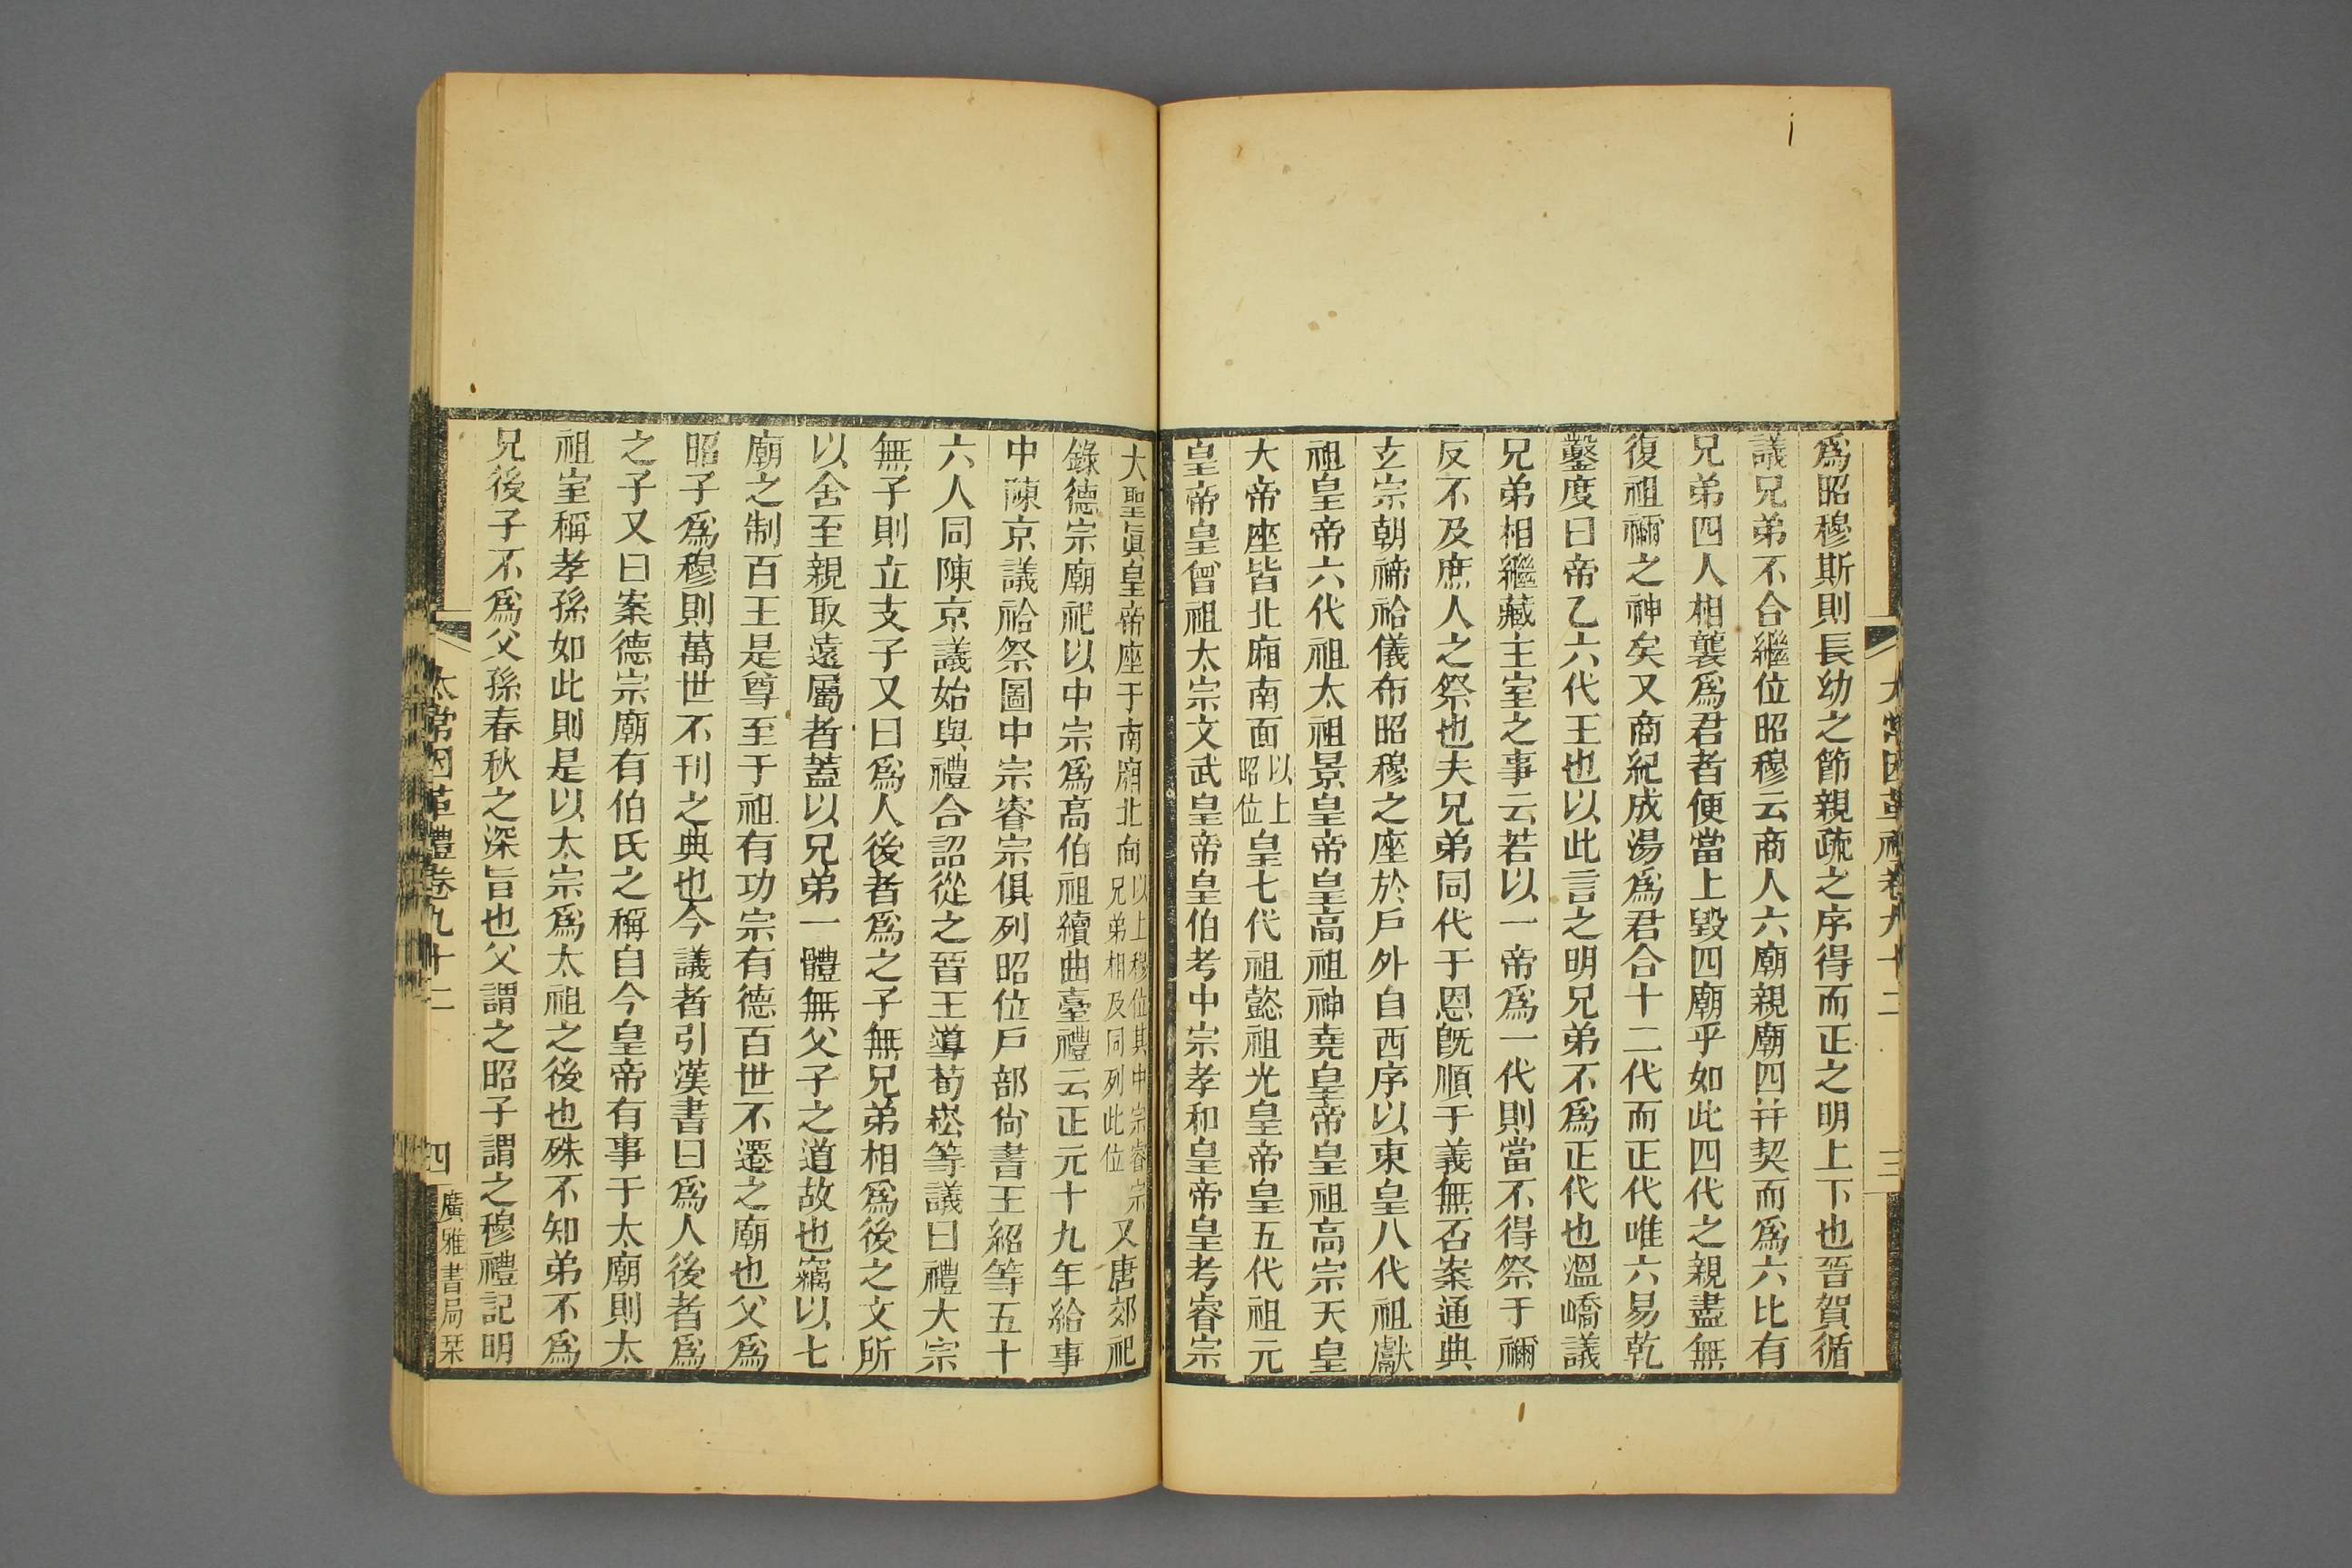 太常因革禮卷九十二 三
爲昭穆斯則長幼之節親疏之序得而正之明上下也晉賀循
議兄弟不合繼位昭穆云商人六廟親廟四幷契而爲六比有
兄弟四人相襲爲君者便當上毀四廟乎如此四代之親盡無
復祖禰之神矣又商紀成湯爲君合十二代而正代唯六易乾
鑿度曰帝乙六代王也以此言之明兄弟不爲正代也溫嶠議
兄弟相繼藏主室之事云若以一帝爲一代則當不得祭于禰
反不及庶人之祭也夫兄弟同代于恩旣順于義無否案通典
玄宗朝禘祫儀布昭穆之座於戶外自西序以東皇八代祖獻
祖皇帝六代祖太祖景皇帝皇高祖神堯皇帝皇祖高宗天皇
大帝座皆北廂南面以上昭位皇七代祖懿祖光皇帝皇五代祖元
皇帝皇曾祖太宗文武皇帝皇伯考中宗孝和皇帝皇考睿宗
大聖眞皇帝座于南廂北向以上穆位其中宗睿宗兄弟相及同列此位又唐郊祀
錄德宗廟祀以中宗爲高伯祖續曲臺禮云正元十九年給事
中陳京議祫祭圖中宗睿宗俱列昭位戶部尙書王紹等五十
六人同陳京議始與禮合詔從之晉王導荀崧等議曰禮大宗
無子則立支子又曰爲人後者爲之子無兄弟相爲後之文所
以舍至親取遠屬者蓋以兄弟一體無父子之道故也竊以七
廟之制百王是尊至于祖有功宗有德百世不遷之廟也父爲
昭子爲穆則萬世不刊之典也今議者引漢書曰爲人後者爲
之子又曰案德宗廟有伯氏之稱自今皇帝有事于太廟則太
祖室稱孝孫如此則是以太宗爲太祖之後也殊不知弟不爲
兄後子不爲父孫春秋之深旨也父謂之昭子謂之穆禮記明
太常因革禮卷九十二 四 廣雅書局栞